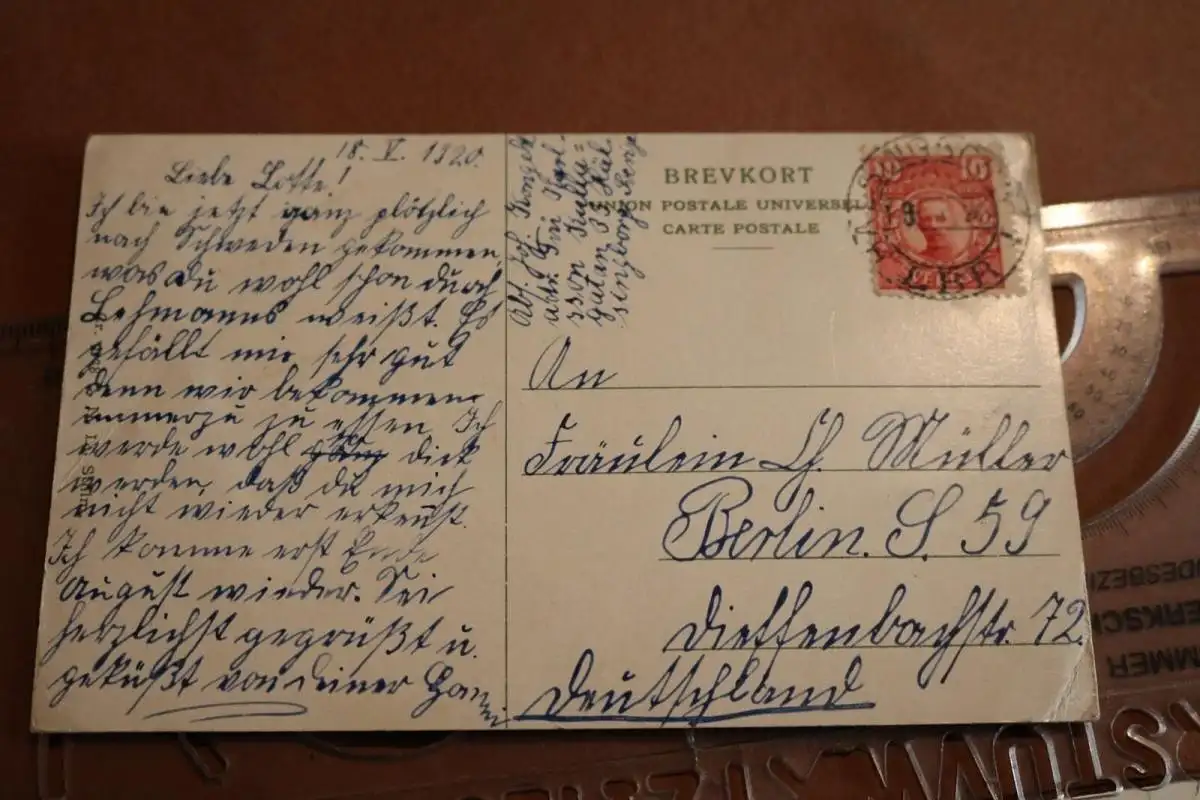 18. V. 1920.
Liebe Lotte!
Ich bin jetzt ganz plötzlich
nach Schweden gekommen,
was Du wohl schon durch
Lehmanns weißt. Es
gefällt mir sehr gut
denn wir bekommen
immerzu zu essen. Ich
werde wohl so dick
werden, daß du mich
nicht wieder erkenst.
Ich komme erst Ende
August wieder. Sei
herzlichst gegrüßt u.
geküßt von deiner Hanni
Abs. Joh.
adr.
son Kullu=
gatan 33 Häl
singborg
BREVKORT
UNION POSTALE UNIVERSELLE
CARTE POSTALE
10 10
18
LBR
An
Fräulein Ch. Müller
Berlin. S. 59
Dieffenbachstr. 72.
Deutschland